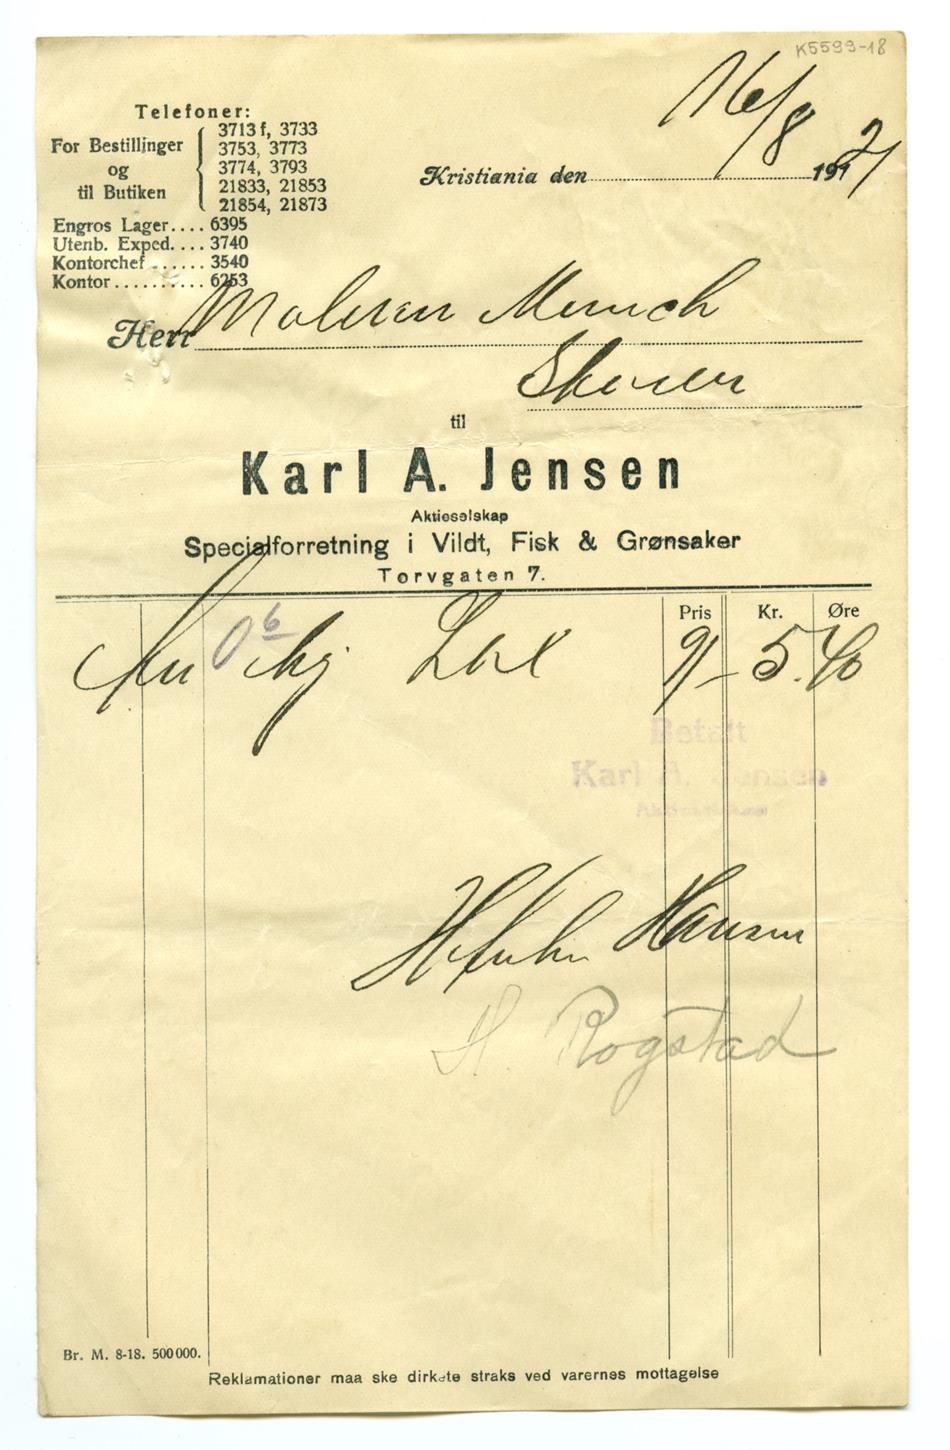 K5599-18
Telefoner:
For Bestillinger og til Butiken
3713 f, 3733
3753, 3773
3774, 3793
21833, 21853
21854, 21873
Engros Lager.... 6395
Utenb. Exped.... 3740
Kontorchef ...... 3540
Kontor.......... 6253
Kristiania den 16/8 1921
Herr Maleren Munch
Skøien
til
Karl A. Jensen
Aktieselskap
Specialforretning i Vildt, Fisk & Grønsaker
Torvgaten 7.
Pris Kr. Øre
06 kg Lax 9/- 5.40
Betalt
Karl A. Jensen
Hansen
H. Rogstad
Br. M. 8-18. 500000.
Reklamationer maa ske dirkete straks ved varernes mottagelse